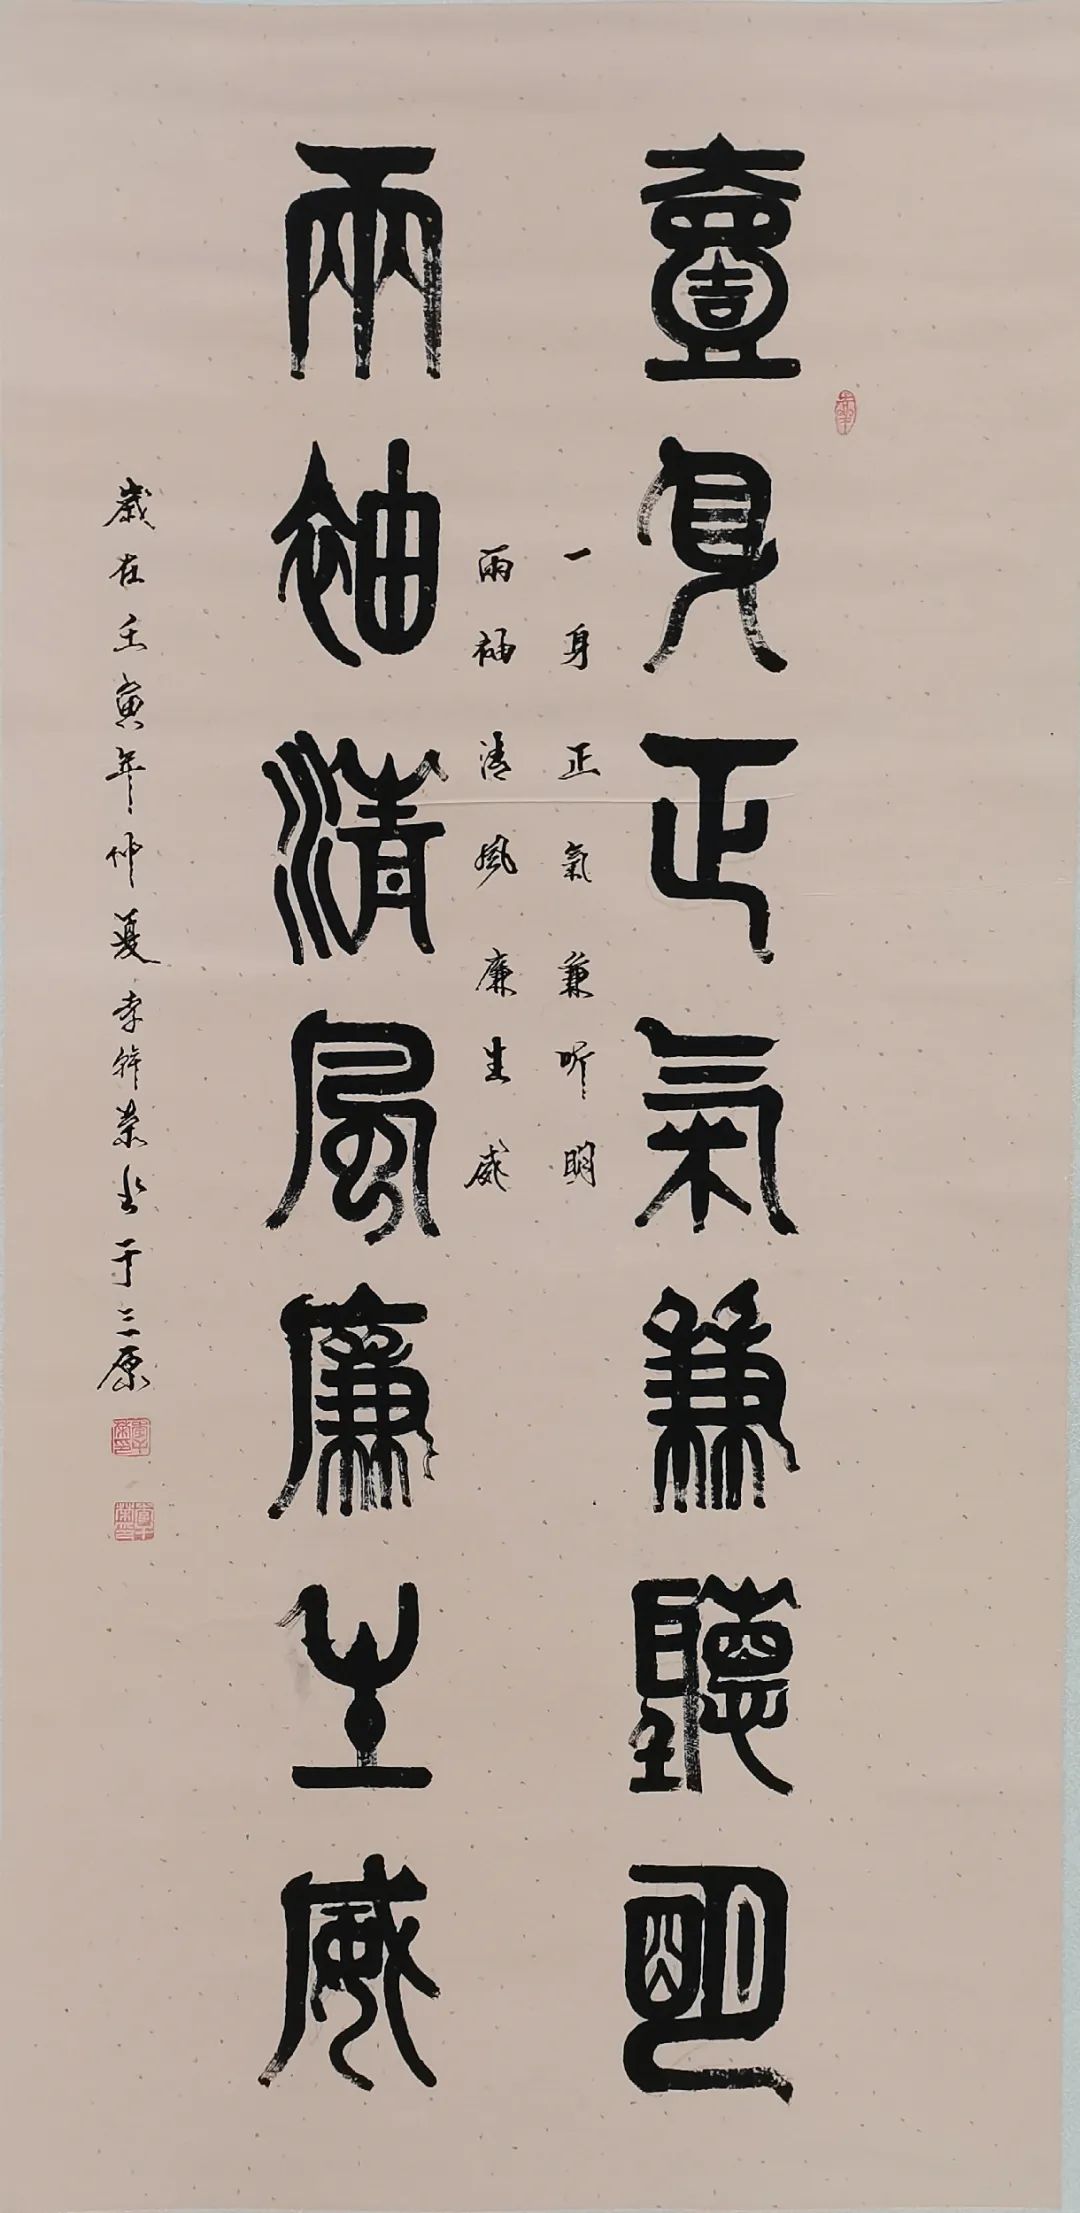 壹身正氣兼聽明
一身正氣兼听明
兩袖清風廉生威
兩袖清風廉生威
歲在壬寅年仲夏李幹荣书于三原